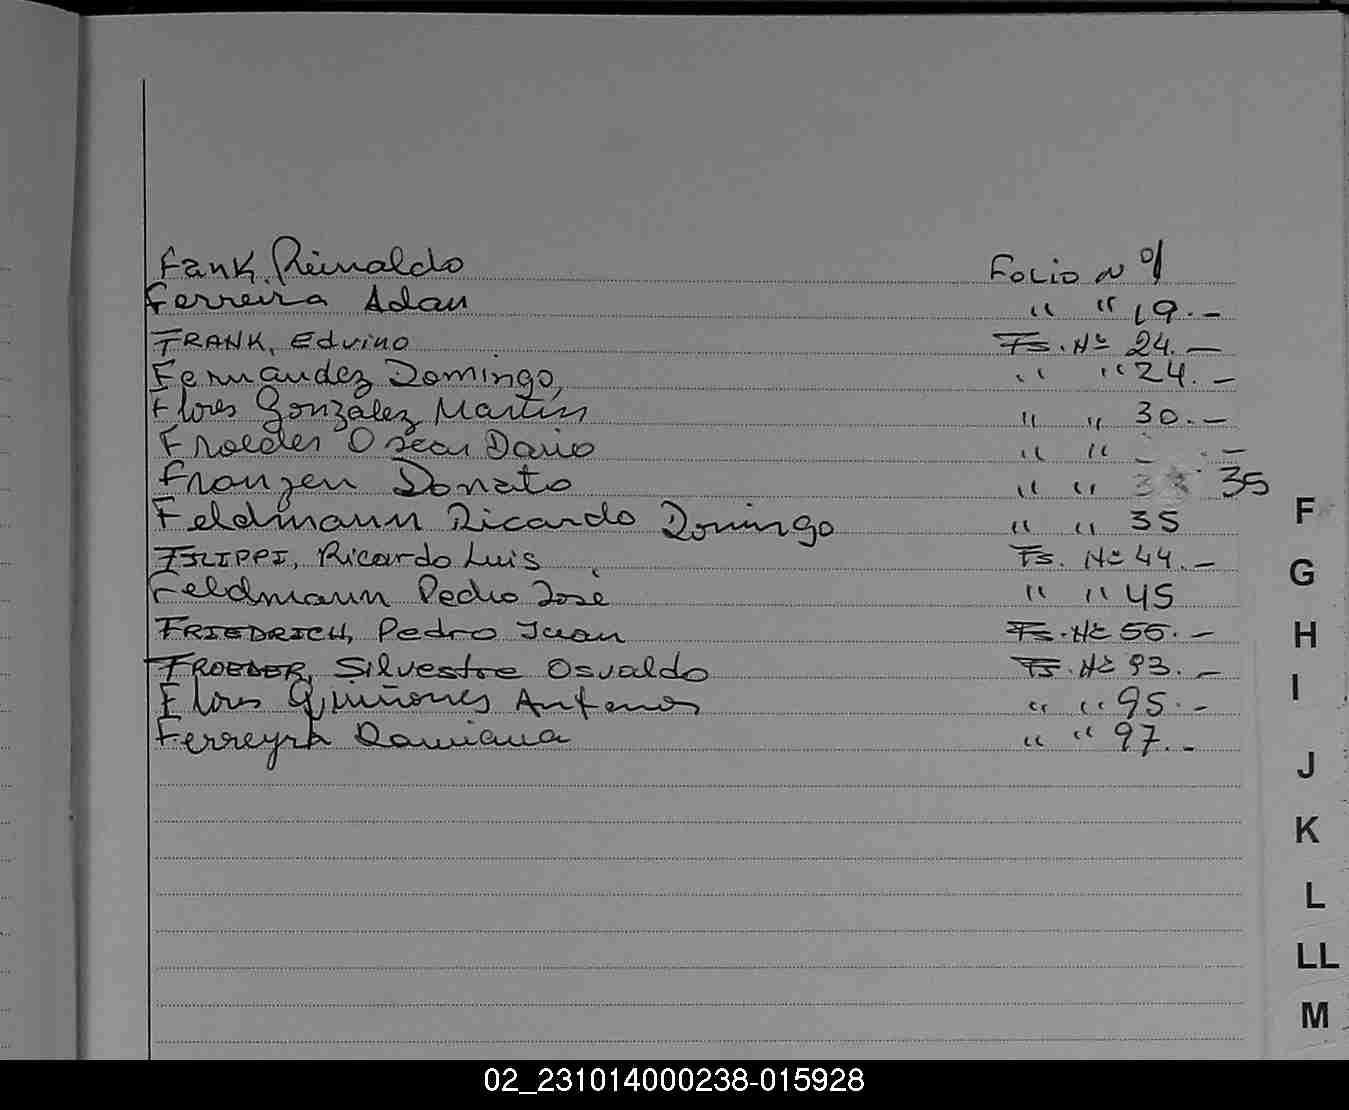 Fank Reinaldo Folio Nº/
Ferreira Adan " " 19.-
FRANK, Edvino Fs. Nº 24.-
Fernandez Domingo, " " 24.-
Flores González Martín " " 30.-
Froeder Oscar Dario " " -
Franzen Donato " " 35
Feldmann Ricardo Domingo " " 35
FILIPPI, Ricardo Luis Fs. Nº 44.-
Feldmann Pedro José " " 45
FRIEDRICH, Pedro Juan Fs. Nº 56.-
FROEDER, Silvestre Osvaldo Fs. Nº 93.-
Flores Quiñones Antenor " " 95.-
Ferreyra Damiana " " 97.-
F
G
H
I
J
K
L
LL
M
02_231014000238-015928